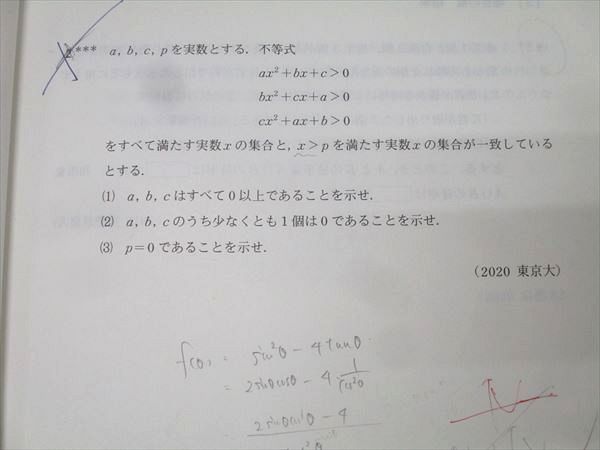 *** a, b, c, p を実数とする．不等式
ax²＋bx＋c＞0
bx²＋cx＋a＞0
cx²＋ax＋b＞0
をすべて満たす実数 x の集合と，x＞p を満たす実数 x の集合が一致している
とする．
(1) a, b, c はすべて 0 以上であることを示せ．
(2) a, b, c のうち少なくとも 1 個は 0 であることを示せ．
(3) p＝0 であることを示せ．
(2020 東京大)
f(θ) = sin²θ － 4tanθ